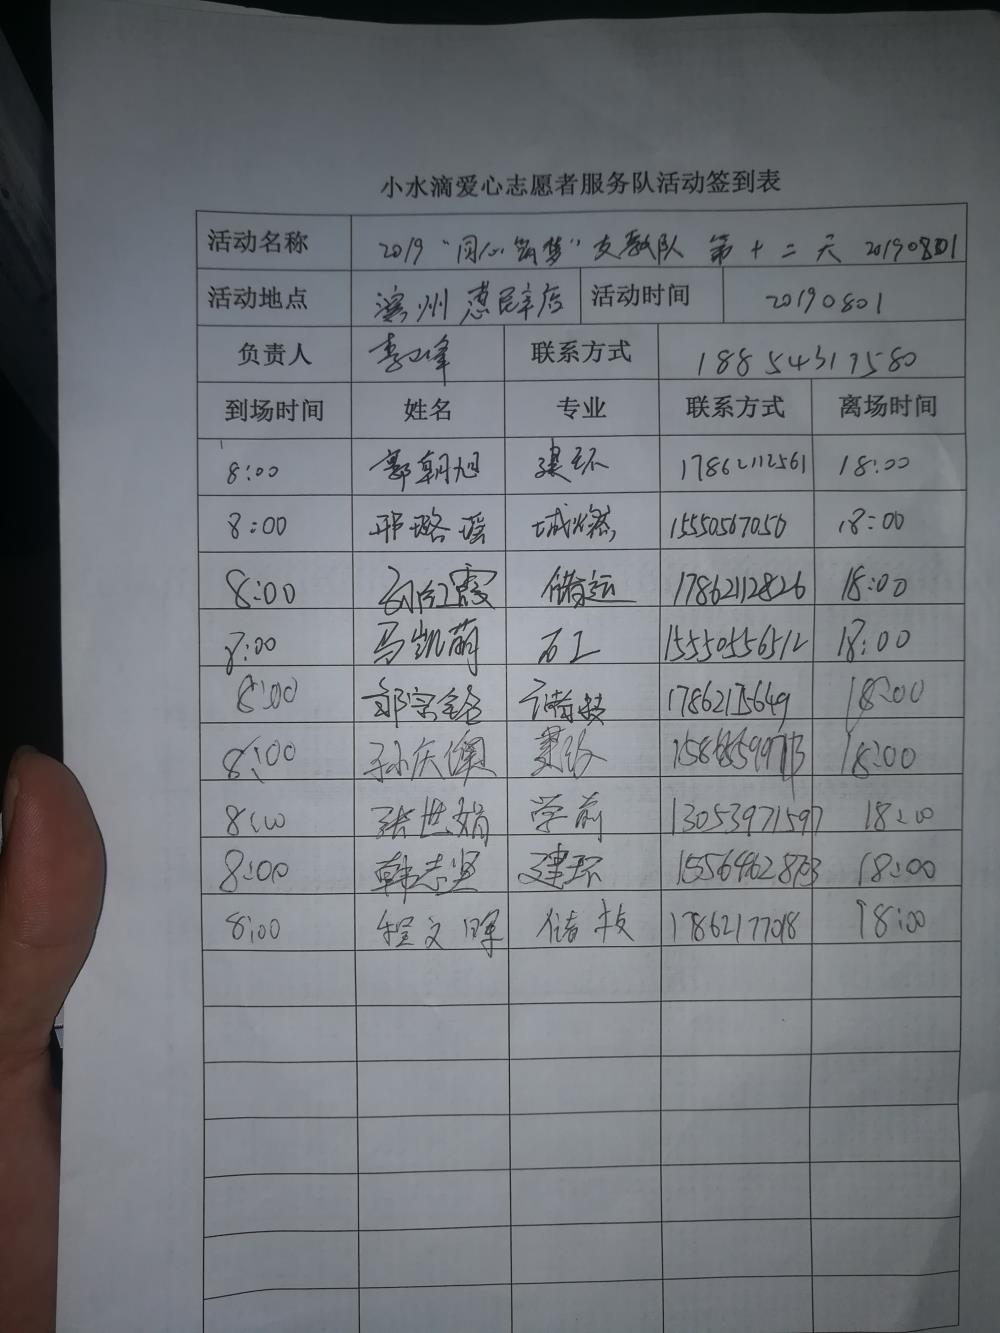 小水滴爱心志愿者服务队活动签到表
活动名称 2019 "同心筑梦" 支教队 第十二天 20190801
活动地点 滨州惠民辛店 活动时间 20190801
负责人 李卫峰 联系方式 18854317580
到场时间 姓名 专业 联系方式 离场时间
8:00 郭朝旭 建环 17862112561 18:00
8:00 邢璐瑶 城燃 15550567056 18:00
8:00 刘红霞 储运 17862112826 18:00
8:00 马凯萌 石工 15550556512 18:00
8:00 郭宗 储技 18:00
8:00 孙庆 18:00
8:00 张世娟 学前 13053971597 18:00
8:00 韩志坚 建环 18:00
8:00 程文晖 储技 17862177018 18:00